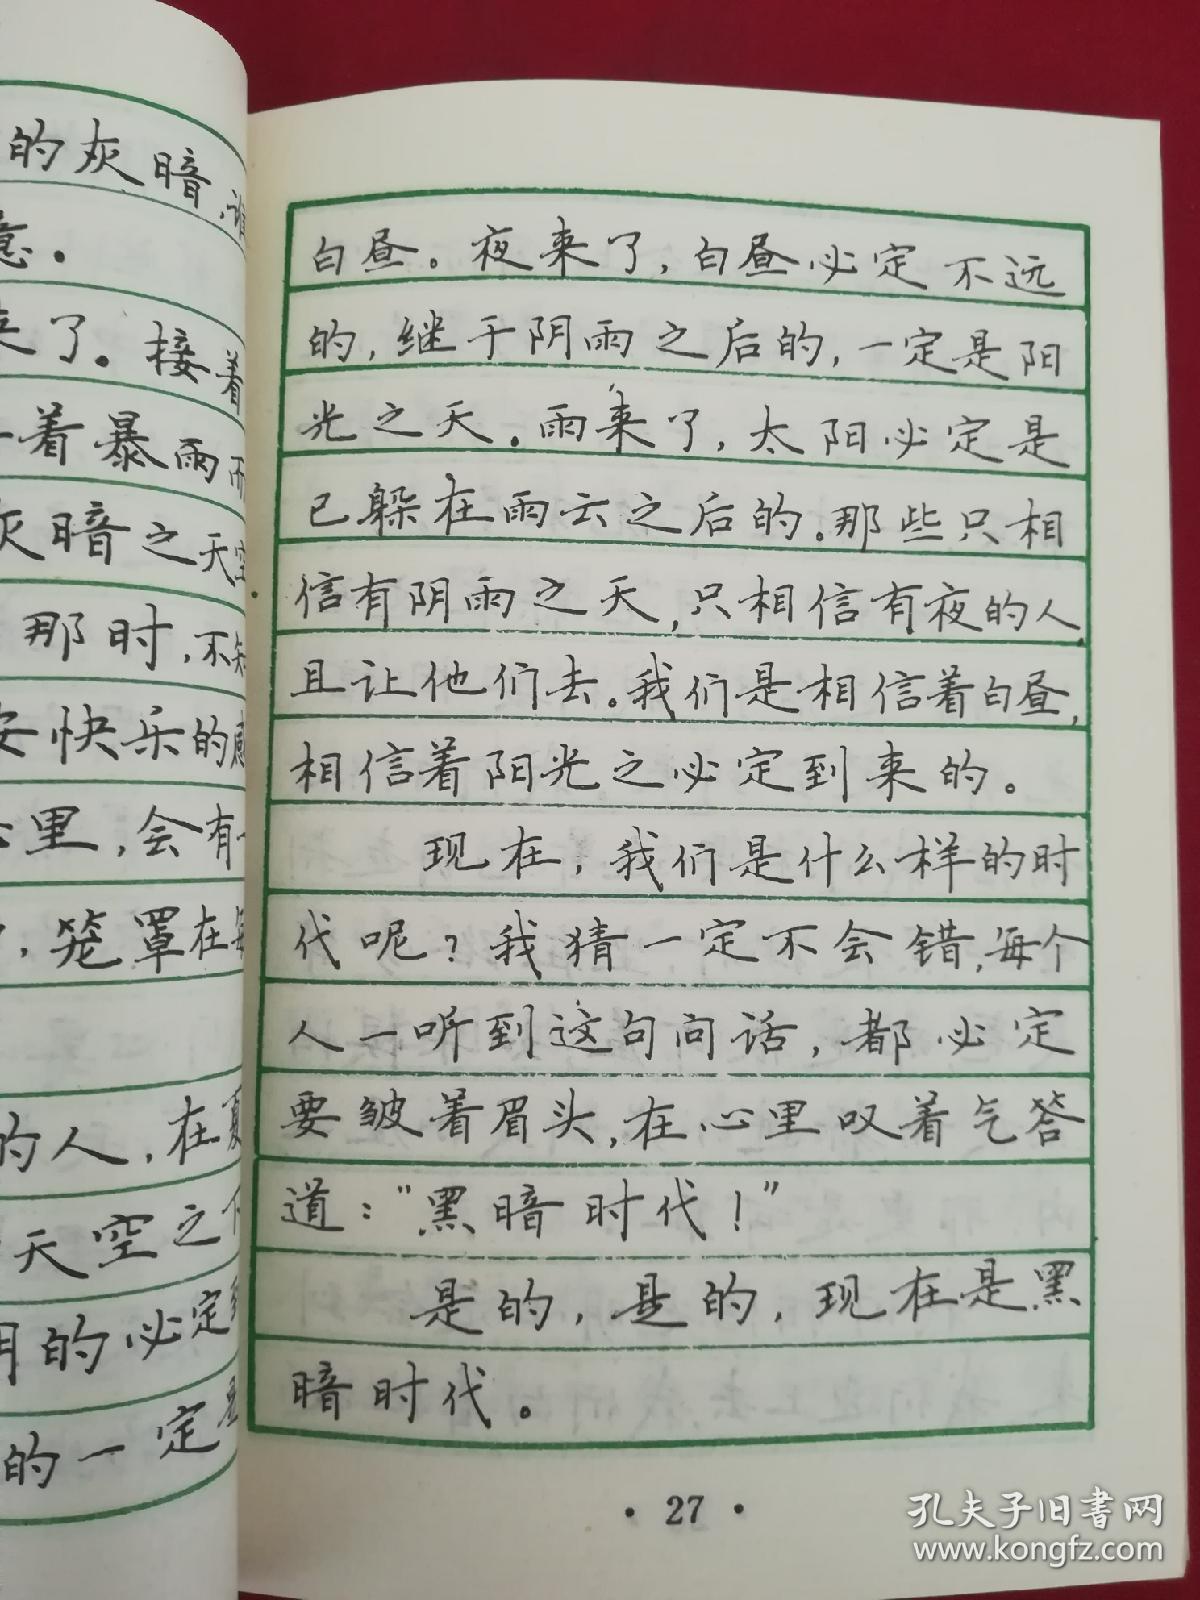 的灰暗,谁
意。
来了。接着
着暴雨而
灰暗之天空
那时,不知
安快乐的
心里,会有一
,笼罩在每
的人,在夏
天空之下
的必定
的一定是
白昼。夜来了,白昼必定不远
的,继于阴雨之后的,一定是阳
光之天。雨来了,太阳必定是
已躲在雨云之后的。那些只相
信有阴雨之天,只相信有夜的人,
且让他们去。我们是相信着白昼,
相信着阳光之必定到来的。
现在,我们是什么样的时
代呢?我猜一定不会错,每个
人一听到这句问话,都必定
要皱着眉头,在心里叹着气答
道:"黑暗时代!"
是的,是的,现在是黑
暗时代。
· 27 ·
孔夫子旧书网
www.kongfz.com